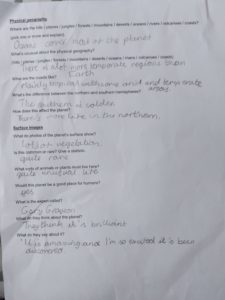 Physical geography
Where are the hills / planes / jungles / forests / mountains / deserts / oceans / rivers / volcanoes / coasts?
(pick one or more and explain)
Oceans cover most of the planet
What's unusual about the physical geography?
(hills / planes / jungles / forests / mountains / deserts / oceans / rivers / volcanoes / coasts)
There is alot more temperate regions than
Earth
What are the inside like?
Mainly tropical with some arid and temperate
areas.
What's the difference between the northern and southern hemispheres?
The southern is colder
How does this affect the planet?
There's more life in the northern.
Surface images
What do photos of the planet's surface show?
Lots of vegetation
Is this common or rare? Give a statistic.
quite rare
What sorts of animals or plants must live here?
quite unusual life
Would this planet be a good place for humans?
yes
What is the expert called?
Gary Grayson
What do they think about the planet?
They think it's brilliant
What do they say about it?
'It is amazing and I'm so excited it's been
discovered.